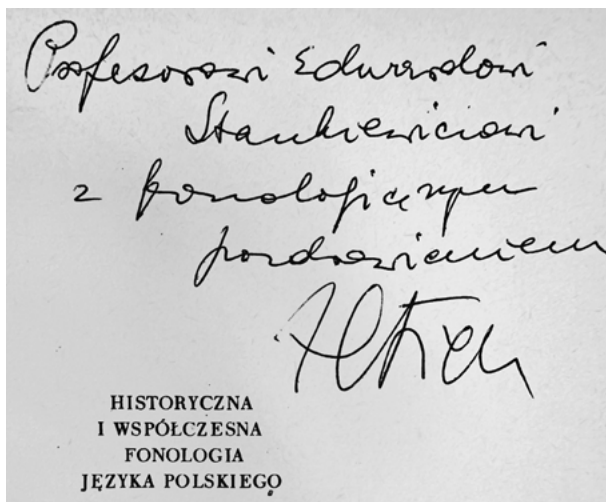 Profesorowi Edwardowi
Stankiewiczowi
z fonologicznym
pozdrowieniem
HISTORYCZNA
I WSPÓŁCZESNA
FONOLOGIA
JĘZYKA POLSKIEGO